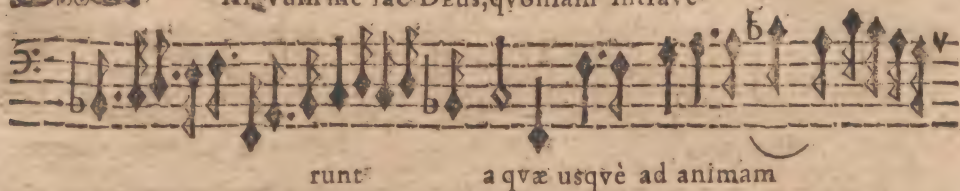 vum me fac Deus, qvoniam intrave
runt aqvæ usqvè ad animam